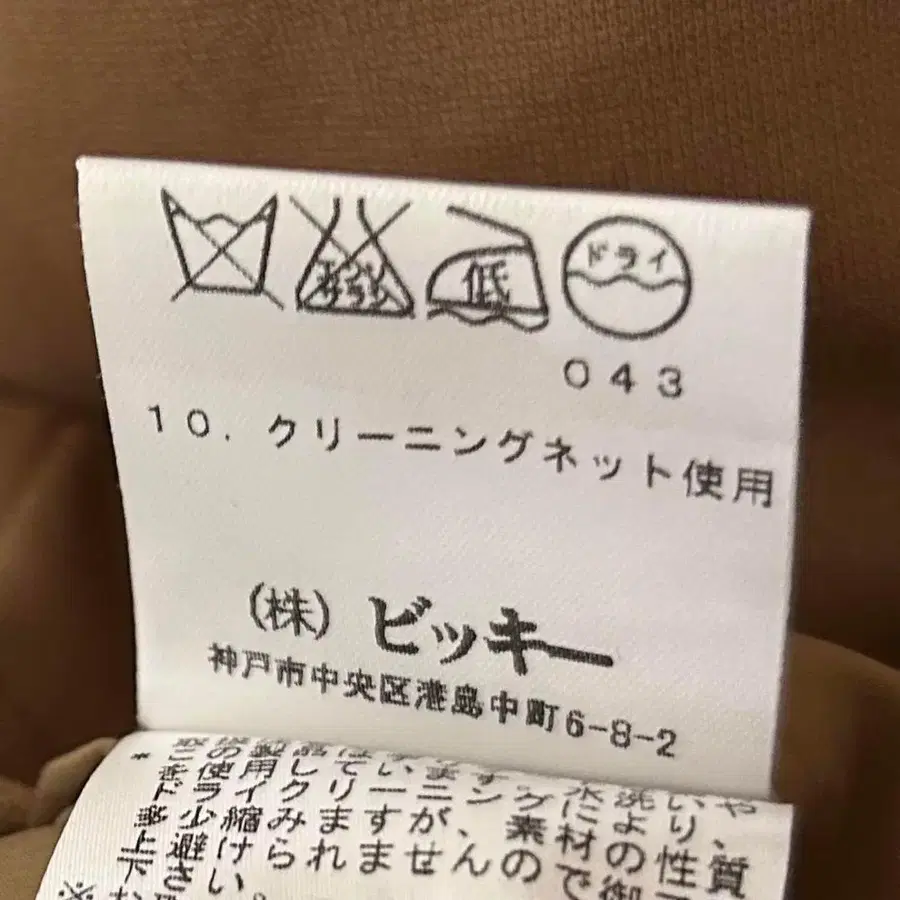 エンソサラシ
低
ドライ
043
10. クリーニングネット使用
(株) ビッキー
神戸市中央区港島中町6-8-2
を使用しています。水洗いや、
ドライクリーニングにより、
多少縮みますが、素材の性質
上避けられませんので御
下さい
※